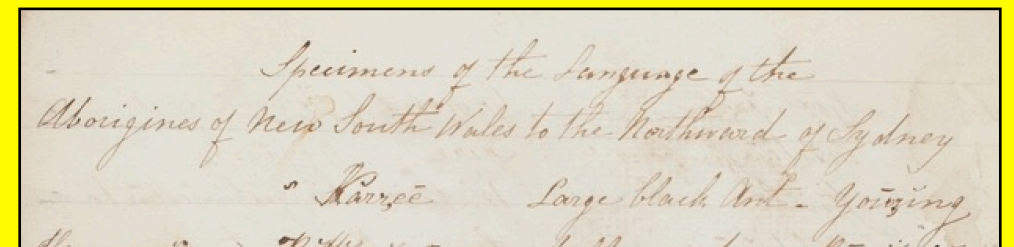 Specimens of the Language of the
Aborigines of New South Wales to the Northward of Sydney
Karrēē Large black Ant -